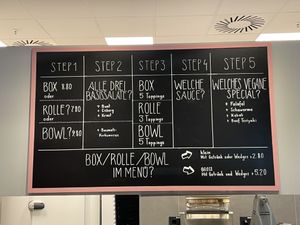 STEP 1
BOX 8.80
oder
ROLLE? 7.80
oder
BOWL? 9.80
STEP 2
ALLE DREI
BASISSALATE?
• Rotkohl
• Eisberg
• Kraut
STEP 3
BOX
5 Toppings
ROLLE
3 Toppings
BOWL
5 Toppings
STEP 4
WELCHE
SAUCE?
STEP 5
WELCHES VEGANE
SPECIAL?
• Falafel
• Schawarma
• Kebab
• Beef Teriyaki
BOX/ROLLE/BOWL
IM MENÜ?
klein
Mit Getränk oder Wedges +2.80
GROSS
Mit Getränk und Wedges +5.20